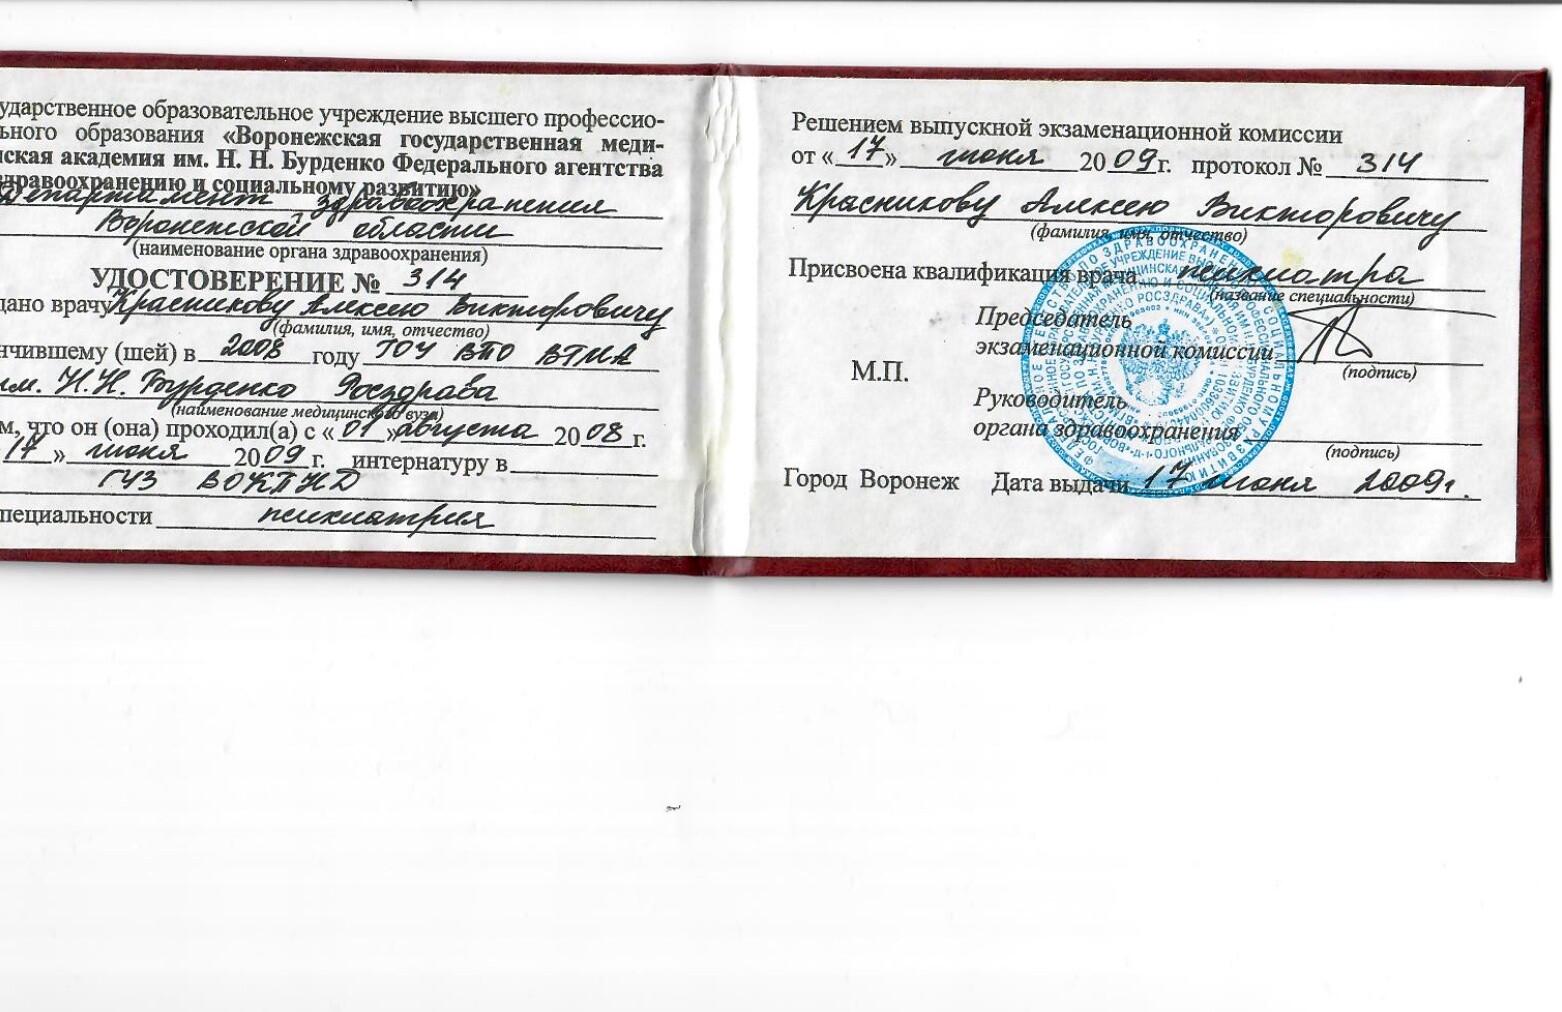 ударственное образовательное учреждение высшего профессио-
ьного образования «Воронежская государственная меди-
нская академия им. Н. Н. Бурденко Федерального агентства
здравоохранению и социальному развитию»
Департамент здравоохранения
Воронежской области
(наименование органа здравоохранения)
УДОСТОВЕРЕНИЕ № 314
дано врачу Красникову Алексею Викторовичу
(фамилия, имя, отчество)
нчившему (шей) в 2008 году ГОУ ВПО ВГМА
им. Н.Н. Бурденко Росздрава
(наименование медицинского вуза)
м, что он (она) проходил(а) с «01» августа 2008 г.
17» июня 2009 г. интернатуру в
ГУЗ ВОКПНД
пециальности психиатрия
Решением выпускной экзаменационной комиссии
от «17» июня 2009 г. протокол № 314
Красникову Алексею Викторовичу
(фамилия, имя, отчество)
Присвоена квалификация врача психиатра
(название специальности)
Председатель
экзаменационной комиссии
(подпись)
М.П.
Руководитель
органа здравоохранения
(подпись)
Город Воронеж Дата выдачи 17 июня 2009г.